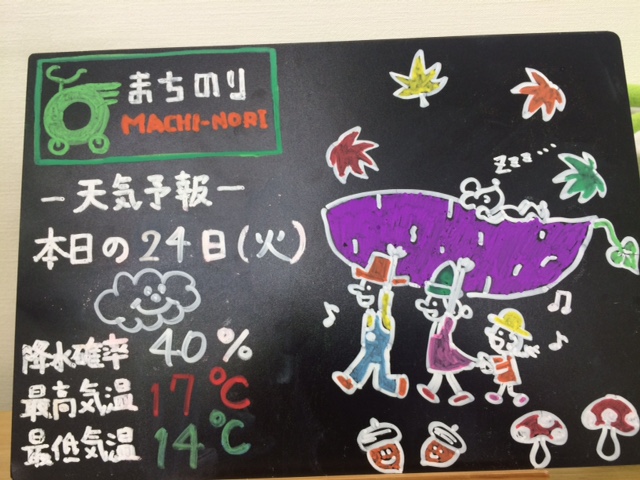 まちのり
MACHI-NORI
-天気予報-
本日の24日(火)
降水確率 40%
最高気温 17℃
最低気温 14℃
zzz...